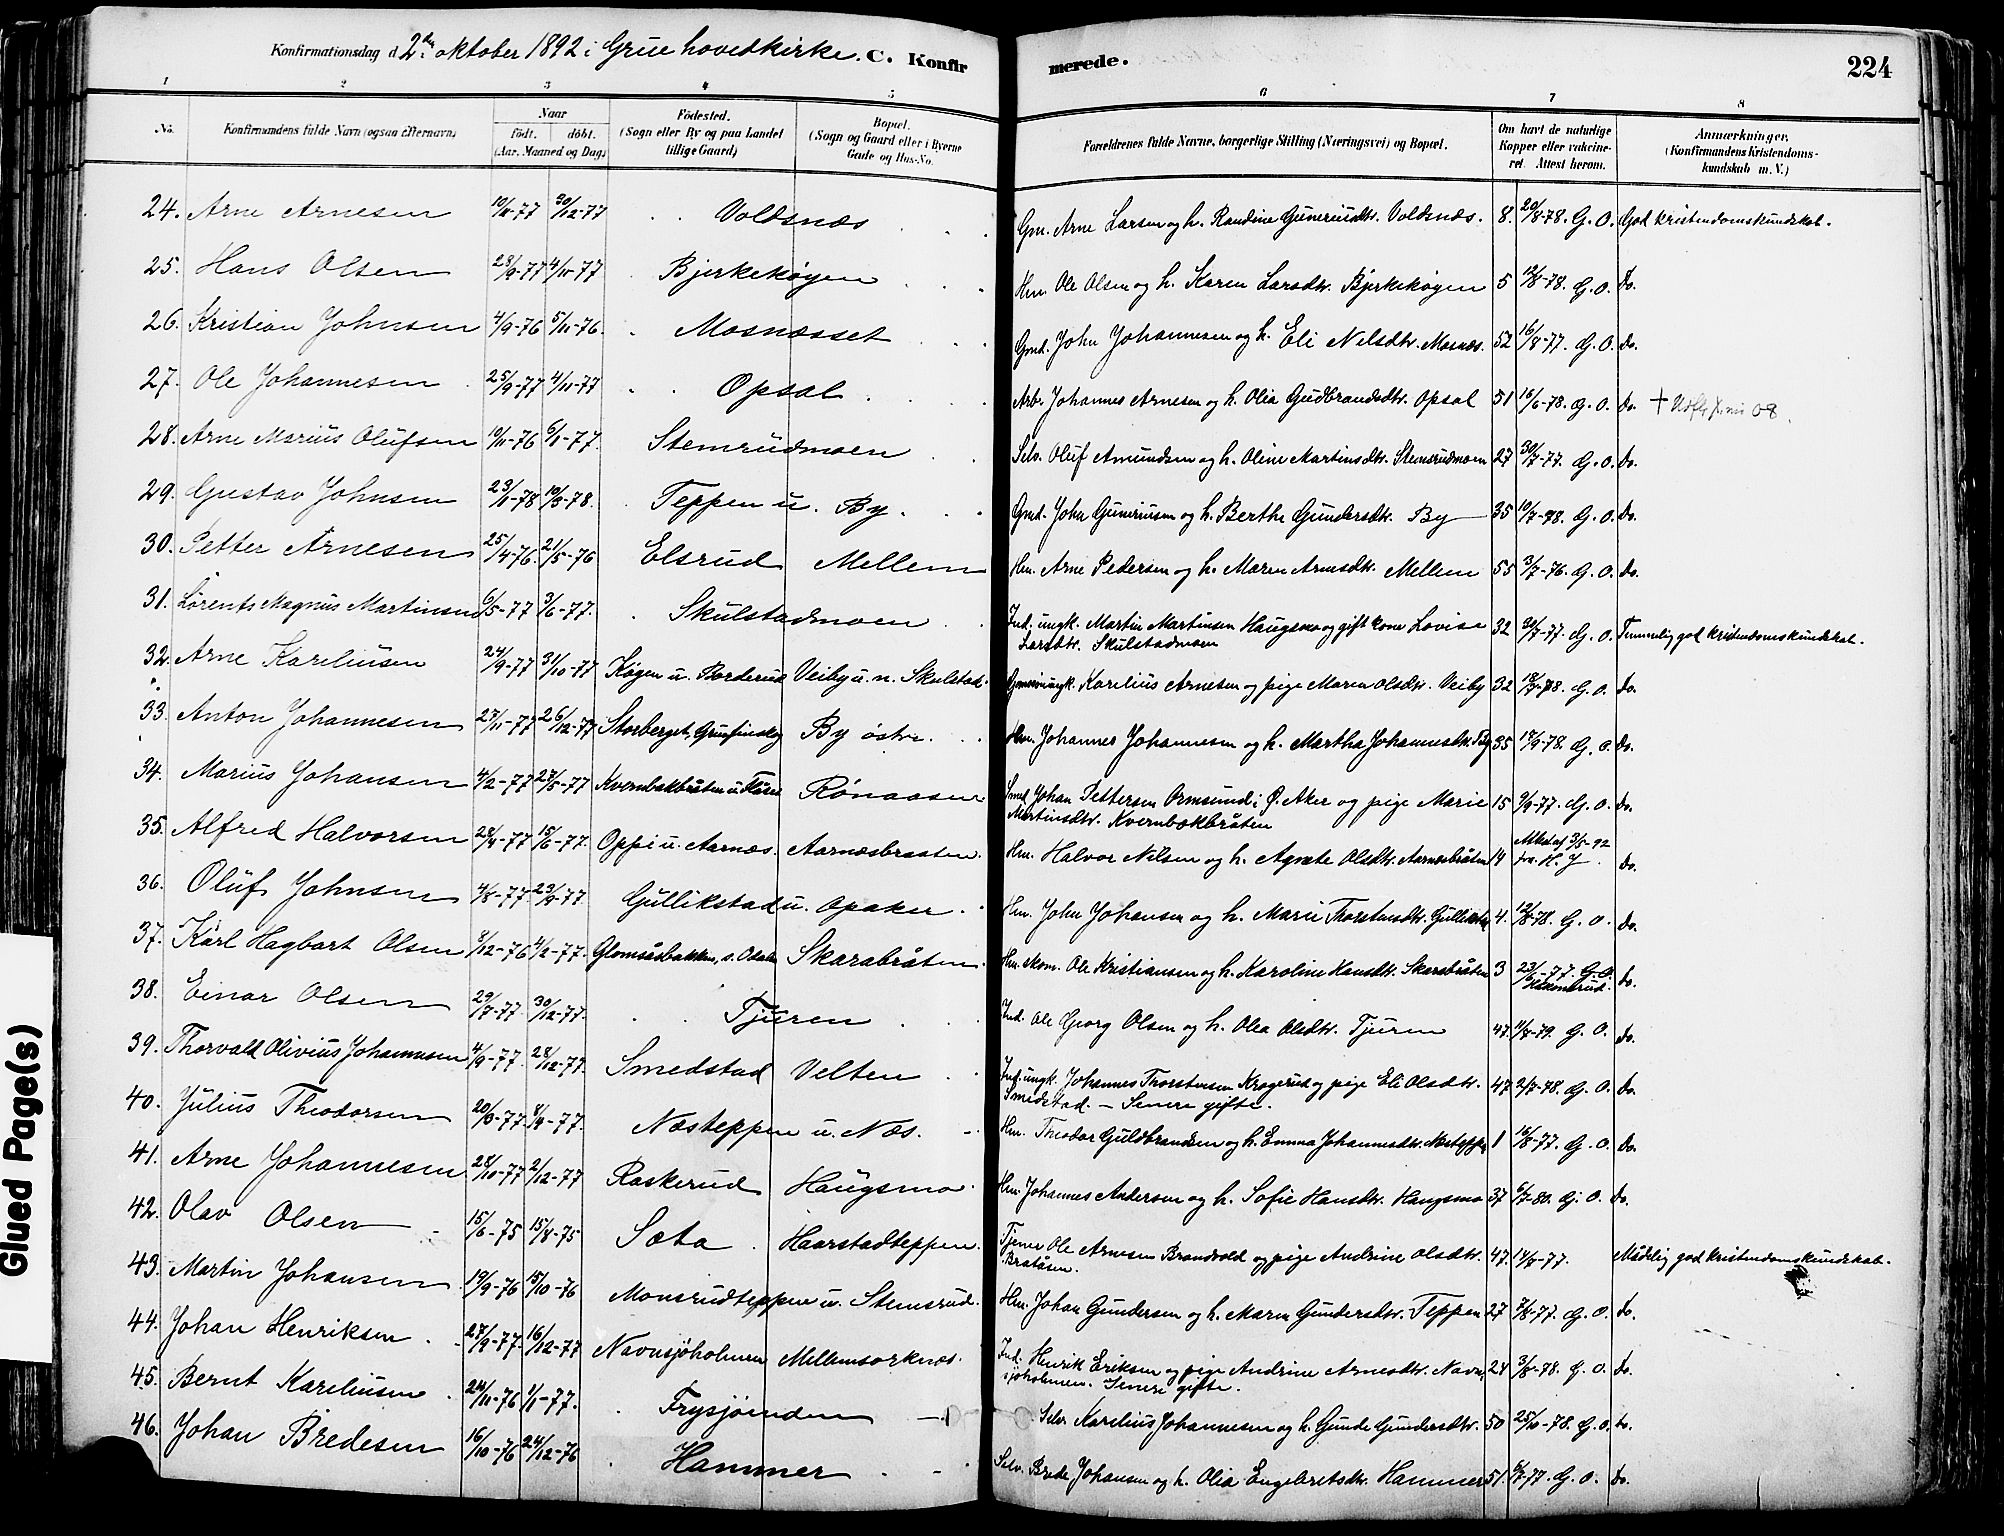 Konfirmationsdag d. 2den oktober 1892 i Grue hovedkirke. C. Konfirmerede. 224
1 2 3 4 5 6 7 8
No. Konfirmandens fulde Navn (ogsaa Efternavn) Naar födt. döbt. (Aar, Maaned og Dag) Födested. (Sogn eller By og paa Landet tillige Gaard) Bopæl. (Sogn og Gaard eller i Byerne Gade og Hus-No. Forældrenes fulde Navne, borgerlige Stilling (Næringsvei) og Bopæl. Om havt de naturlige Kopper eller vakcineret. Attest herom. Anmærkninger. (Konfirmandens Kristendomskundskab m. V.)
24. Arne Arnesen 30/12-77 Voldsnæs Gm. Arne Larsen og h. Randine Guneriusdtr. Voldsnæs. 8. 20/8-78. G. O. God kristendomskundskab.
25. Hans Olsen 23/9-77 4/11-77 Bjerkekøyen Hm. Ole Olsen og h. Karen Larsdtr. Bjerkekøyen 5 12/8-78. G. O. Do.
26. Kristian Johnsen 4/9-76 5/11-76. Mosnæsset Gmd. John Johannesen og h. Eli Nilsdtr. Mosnæs. 52 16/8-77. G. O. Do.
27. Ole Johannesen 25/9-77 4/11-77 Opsal Arb. Johannes Arnesen og h. Olia Gudbrandsdtr. Opsal 51 16/6-78. G. O. Do. +
28. Arne Marius Olufsen 10/11-76 6/1-77. Stemrudmoen Selv. Oluf Amundsen og h. Oline Martinsdtr. Stemsrudmoen 27 30/7-77. G. O. Do.
29. Gustav Johnsen 23/1-78 10/3-78. Teppen u. By. Gmd. John Guneriusen og h. Berthe Gundersdtr. By 35 G. O. Do.
30. Petter Arnesen 25/4-76. 21/5-76 Elsrud Mellem Hm. Arne Pedersen og h. Maren Arnesdtr. Mellem 55 3/7-76. G. O. Do.
31. Lorents Magnus Martinsen 6/5-77 3/6-77. Skulstadmoen Ind. ungk. Martin Martinsen Haugsmo og gift kone Lovise 32 30/7-77. G. O. Temmelig god kristendomskundskab.
Larsdtr. Skulstadmoen
32. Arne Kareliusen 24/9-77 31/10-77 Køgen u. Borderud Veiby u. n. Skulstad. ungk. Karelius Arnesen og pige Maren Olsdtr. Veiby 32 G. O. Do.
33. Anton Johannesen 27/11-77 26/12-77 Storberget, Grue finskog By østre. Hm. Johannes Johannesen og h. Martha Johannesdtr. By 35 18/9-78. G. O. Do.
34. Marius Johansen 4/2-77 27/5-77 Kvernbakbråten Rønaasen Smed Johan Pettersen Ormsund i Ø. Aker og pige Marie 15 9/9-77. G. O. Do.
Martinsdtr. Kvernbækbråten
35. Alfred Halvorsen 28/4-77 15/6-77. Oppi u. Aarnæs. Aarnæsbraaten. Hm. Halvor Nilsen og h. Agnete Olsdtr. Aarnæsbråten 14 Attest af 3/5-92 fra H. J. Do.
36. Oluf Johnsen 4/8-77. 23/9-77. Gullikstad u. Opaker. Hm. John Johansen og h. Marie Thorstensdtr. Gullikstad 4. 12/8-78. G. O. Do.
37. Karl Hagbart Olsen 8/12-76 4/2-77. Glomsåsbakken, s. Odalen Skarabråten. Hm. skom. Ole Kristiansen og h. Karoline Hansdtr. Skarabråten 3 23/6-77. G. O. Do.
38. Einar Olsen 29/7-77. 30/12-77. Tjuren Ind. Ole Georg Olsen og h. Olea Olsdtr. Tjuren 47. G. O. Do.
39. Thorvald Olivius Johannesen 4/9-77. 28/12-77. Smedstad Velten Ind. ungk. Johannes Thorstensen Krogerud og pige Eli Olsdtr. 47. 2/7-78. G. O. Do.
Smedstad. — Senere gifte.
40. Julius Theodorsen 20/3-77. 8/4-77. Næsteppen u. Næs. Hm. Theodor Guldbrandsen og h. Emma Johannesdtr. Næsteppen 1 16/8-77. G. O. Do.
41. Arne Johannesen 28/10-77 2/12-77 Raskerud Haugsmo. Hm. Johannes Andersen og h. Sofie Hansdtr. Haugsmo 37 6/7-80. G. O. Do.
42. Olav Olsen 15/6-75 15/8-75 Sæta. Haarstadteppen. Tjener Ole Arnesen Brandvold og pige Andrine Olsdtr. 47. Mådelig god kristendomskundskab.
Bråtåsen.
43. Martin Johansen 19/9-76 15/10-76 Monsrudteppen u. Stemsrud. Hm. Johan Gundersen og h. Maren Gundersdtr. Teppen 27 7/8-77. G. O. Do.
44. Johan Henriksen. 27/9-77. 16/12-77 Navnsjøholmen Mellemsorknæs. Ind. Henrik Eriksen og pige Andrine Arnesdtr. Navn 24 3/8-78. G. O. Do.
sjøholmen. Senere gifte.
45. Bernt Kareliusen. 24/11-76 1/1-77. Frysjøenden Selv. Karelius Johannesen og h. Gunde Gundersdtr. 50 G. O. Do.
46. Johan Bredesen 16/10-76 24/12-76 Hammer Selv. Brede Johansen og h. Olia Engebretsdtr. Hammer 51. G. O. Do.
Glued Page(s)